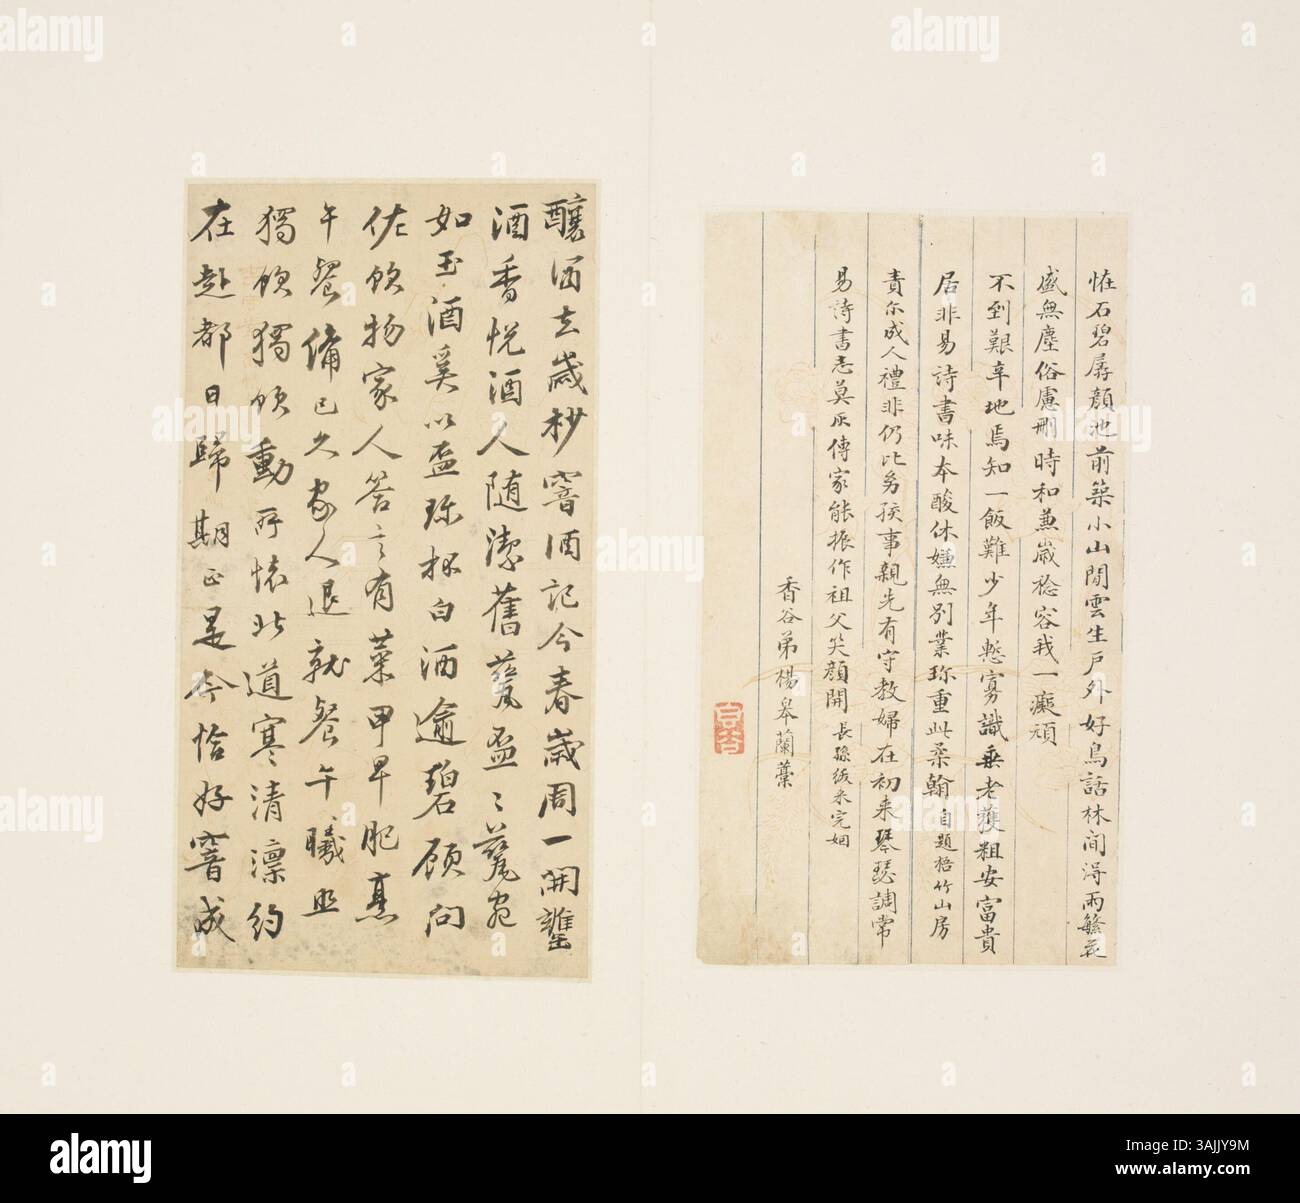 恠石碧孱顔池前築小山閒雲生戸外好鳥話林間淂雨繁花
盛無塵俗慮刪時和兼嵗稔容我一癡頑
不到艱辛地焉知一飯難少年慙寡識垂老獲粗安富貴
居非易詩書味本酸休嫌無別業珎重此柔翰 自題梧竹山房
責尓成人禮非仍比匆孩事親先有守教婦在初来琴瑟調常
易詩書志莫灰傳家能振作祖父笑顔開 長孫紱来完姻
香谷弟楊皋蘭藁
釀酒去嵗杪窨酒記今春嵗周一開
酒香悦酒人随潔舊甆盃〻甆宛
如玉酒奚以盃珎杯白酒逾碧顧问
佐飲物家人答言有菜甲早肥熏
午餐備已久家人退就餐午曦照
獨飲獨飲動所懐北道寒清凛約
在赴都日歸期正是今恰好窨成
alamy
a
Image ID: 3AJJY9M
www.alamy.com